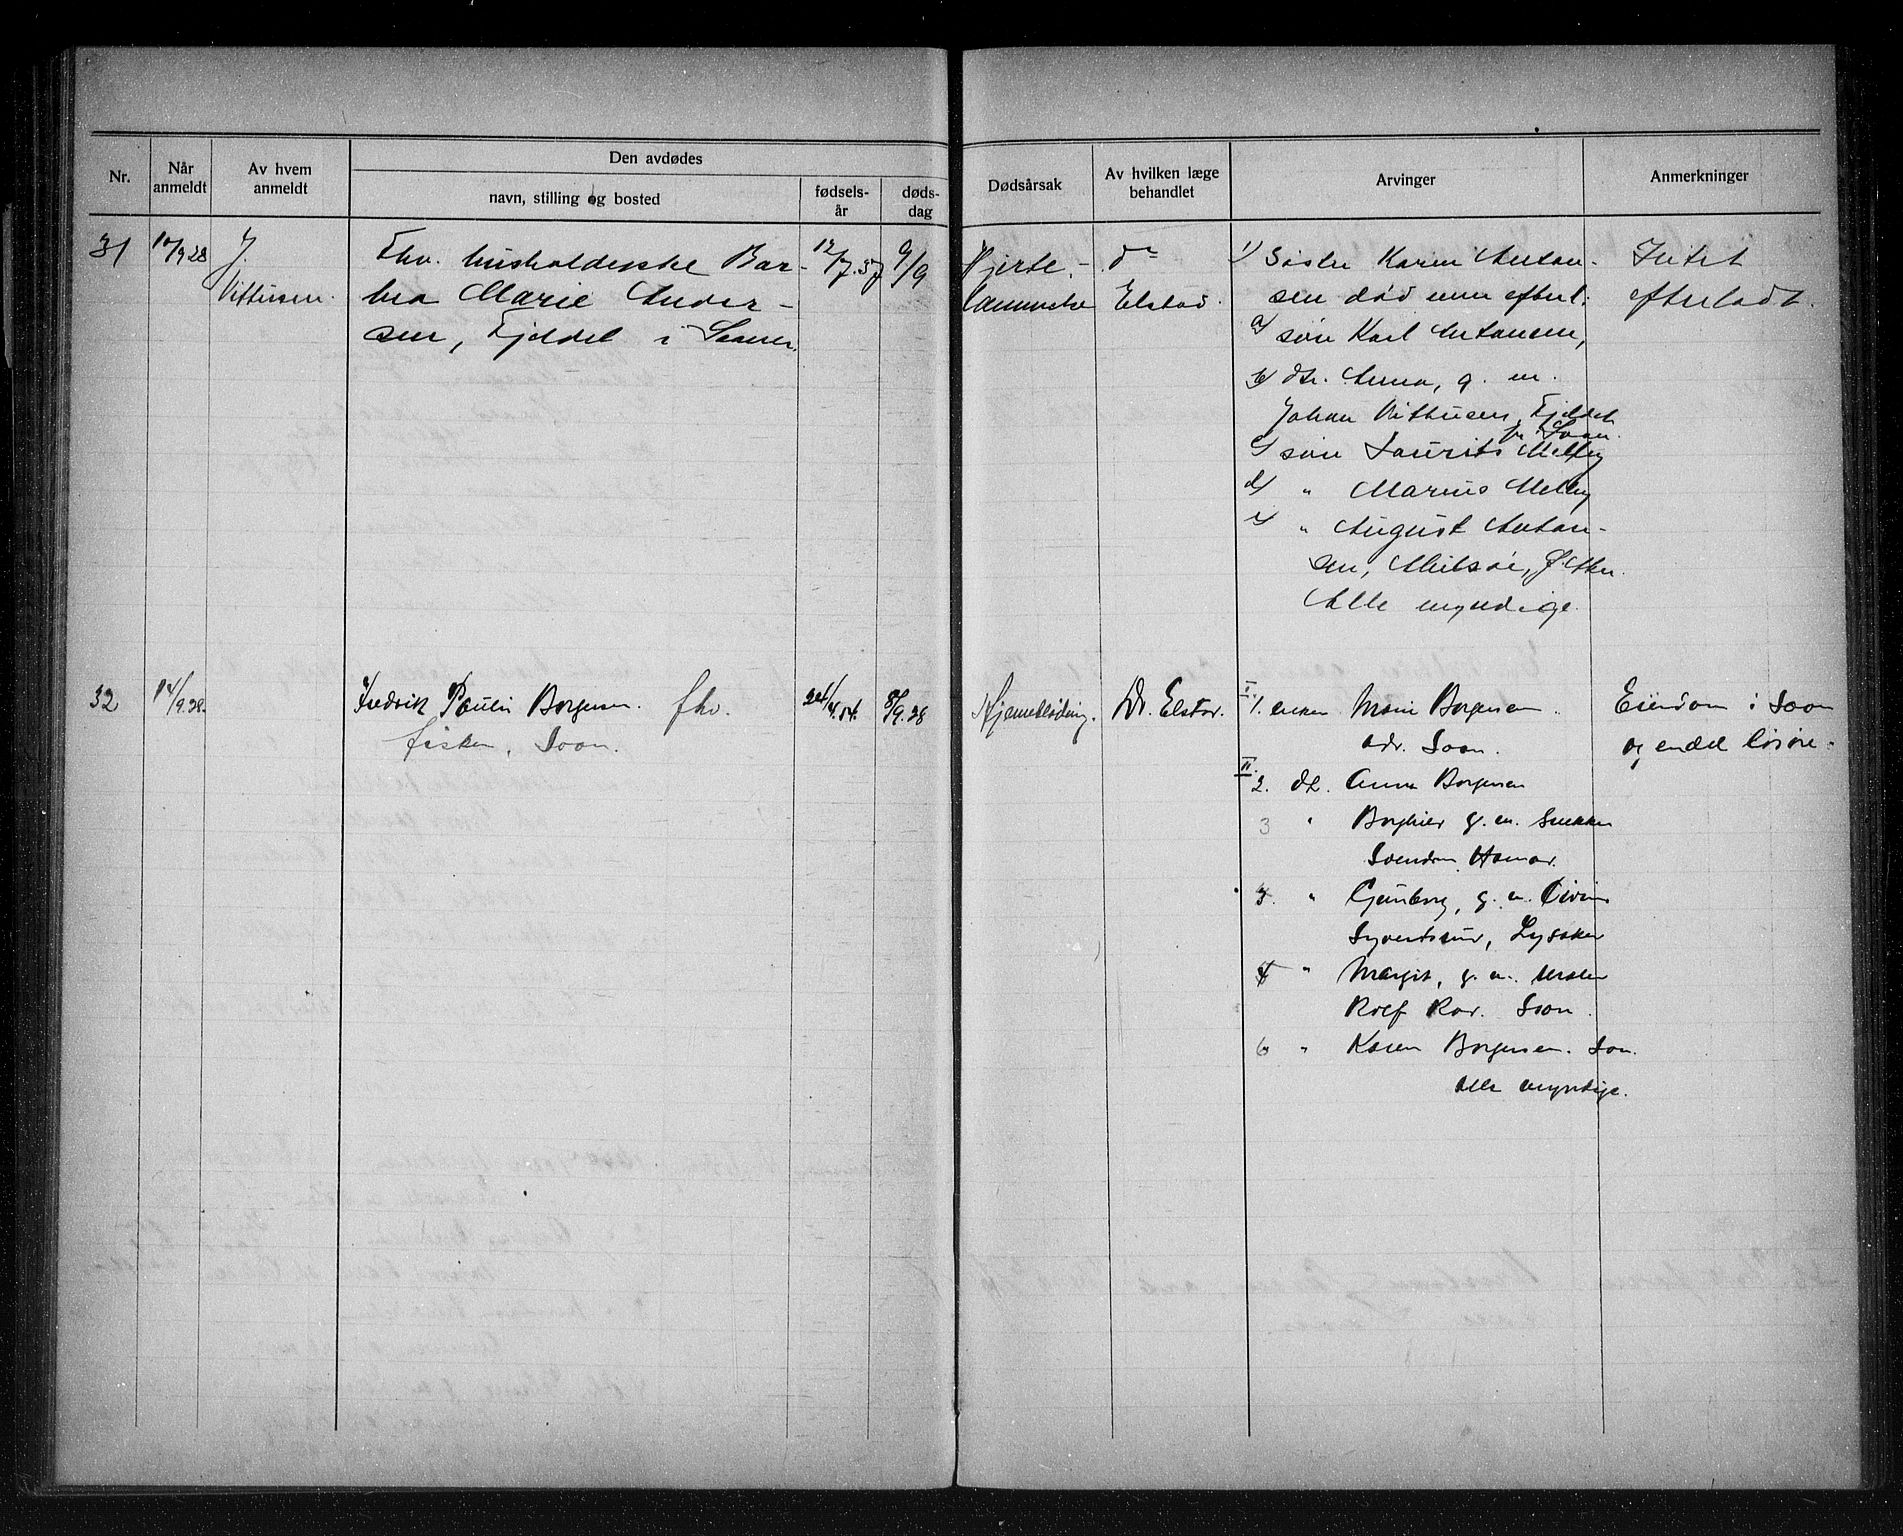 Nr.
Når anmeldt
Av hvem anmeldt
Den avdødes
navn, stilling og bosted
fødsels-år
døds-dag
Dødsårsak
Av hvilken læge behandlet
Arvinger
Anmerkninger
31
10/9 28
J.
Vithusen.
Fhv. husholderske Bar-
bra Marie Ander-
sen, Fjeldet i Saaner.
12/7.57
9/9
Hjerte-
lammelse
dr
Elstad.
1) Søster Karen Antan-
sen død men efterl.
a) søn Karl Antansen,
b) dtr. Anna, g. m.
Johan Vithusen, Fjeldet
pr. Soon.
c) søn Laurits Melby
d) " Marius Melby
e) " August Antan-
sen,
Alle myndige.
Intet
efterladt.
32
14/9.28.
Fredrik Paulin Borgersen. fhv.
fisker, Soon.
24/4.54.
8/9.28
Hjerneblødning.
Dr. Elstad.
I
1. enken Marie Borgersen
adr. Soon.
II
2. dt. Anna Borgersen
3 " Borghild g. m. Snekker
Svendsen Hamar.
3. " Gunborg, g. m.
Syvertsen, Lysaker
4 " Margit, g. m. Maler
Rolf Roe. Soon.
6 " Karen Borgersen. Son.
alle myndige.
Eiendom i Soon
og endel løsøre.